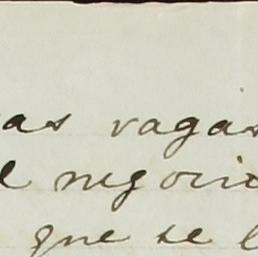 as vagas
negocio
que se